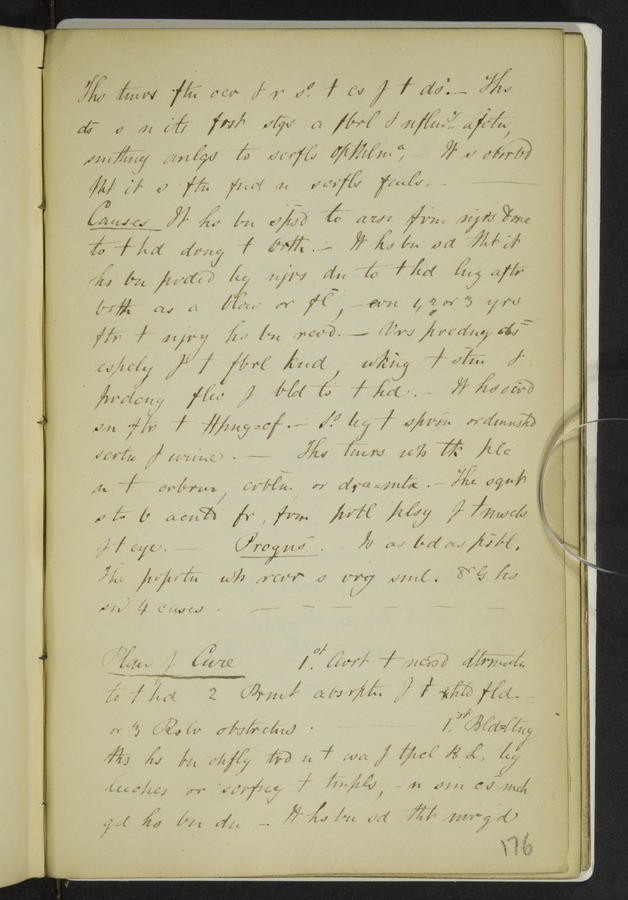 Ths tmrs ftn ocr & r so. t cs f t ds. — Ths
ds s n its frst stgs a fbrl & nflmy afctn,
smthng anlgs to scrfls opthlma, — It s obsrvd
tht it s ftn fnd n scrfls fmls. —
Causes It hs bn spsd to arse frm njrs done
to t hd drng t brth. — It hs bn sd tht it
hs bn prdcd by njrs dn to t hd lng aftr
brth as a blow or fl, — evn 1, 2 or 3 yrs
ftr t njry hs bn recvd. — Vrs prcdng ds
espcly f t fbrl knd, wkng t stm &
prdcng flw f bld to t hd. — It hs ocrd
sn ftr t Hpngcf. — So. by t sprsn or dmnshd
scrtn f urine. — Ths tmrs wh tk plc
n t crbrm, crblm, or dra=mtr. — The sqnt
s to b acntd fr, frm prtl plsy f t mscls
f t eye. — Prognos. — Is as bd as psbl.
The prprtn wh rcvr s vry sml. Dr G hs
sn 4 cases. — — — — — —
Plan f Cure 1st. Avrt t ncrsd dtrmntn
to t hd 2 Prmt absrptn f t xhld fld. —
or 3 Rslv obstrctns. — 1.st Bld=ltng
ths hs bn chfly trd n t wa f tpcl B L, by
leeches or scrfng t tmpls, — n sm cs mch
gd hs bn dn — It hs bn sd tht mr gd
176